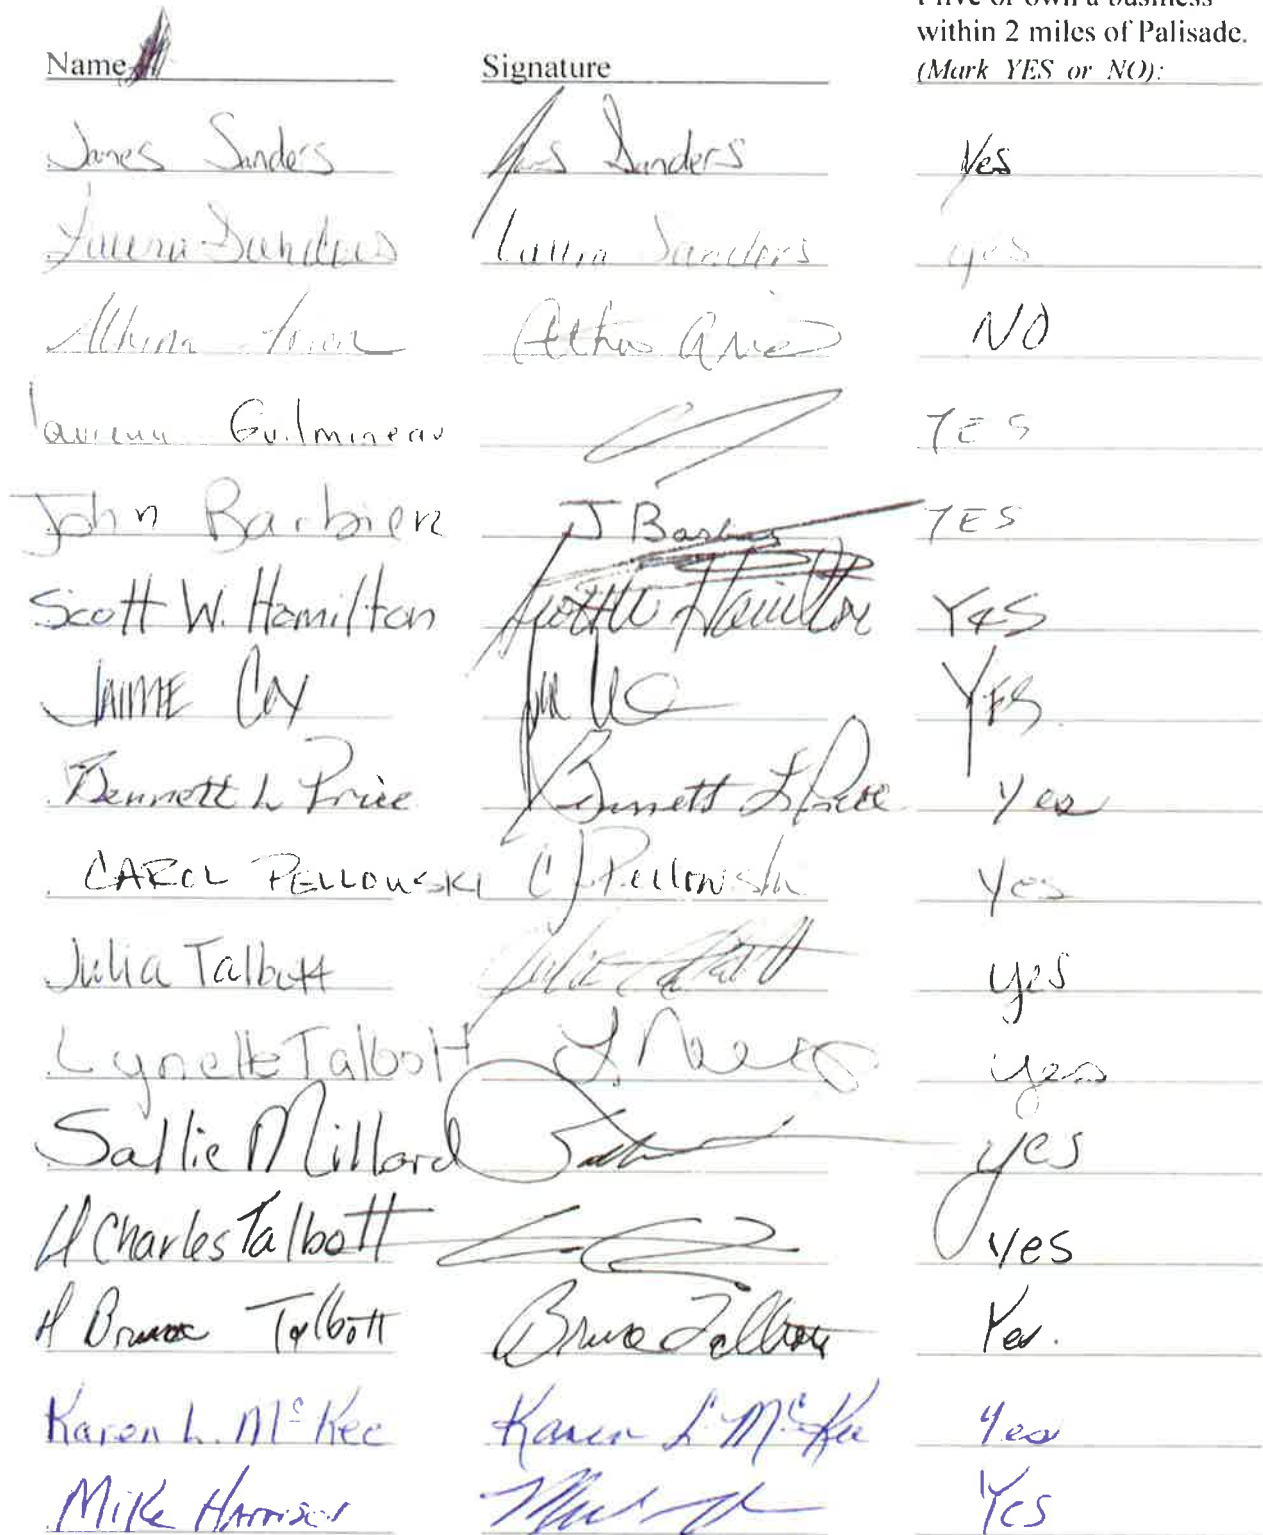 I live or own a business
within 2 miles of Palisade.
Name Signature (Mark YES or NO):
James Sanders James Sanders Yes
Laura Sanders Laura Sanders yes
NO
Guilmineau YES
John Barbier J Barbier YES
Scott W. Hamilton Scott W Hamilton Yes
JAIME COX YES
Bennett L Price Bennett L Price Yes
CAROL PELLOWSKI CJ Pellowski Yes
Julia Talbott Julia Talbott yes
Lynette Talbott yes
Sallie Millard yes
H Charles Talbott yes
H Bruce Talbott Bruce Talbott Yes.
Karen L. McKee Karen L McKee Yes
Mike Harrison Yes